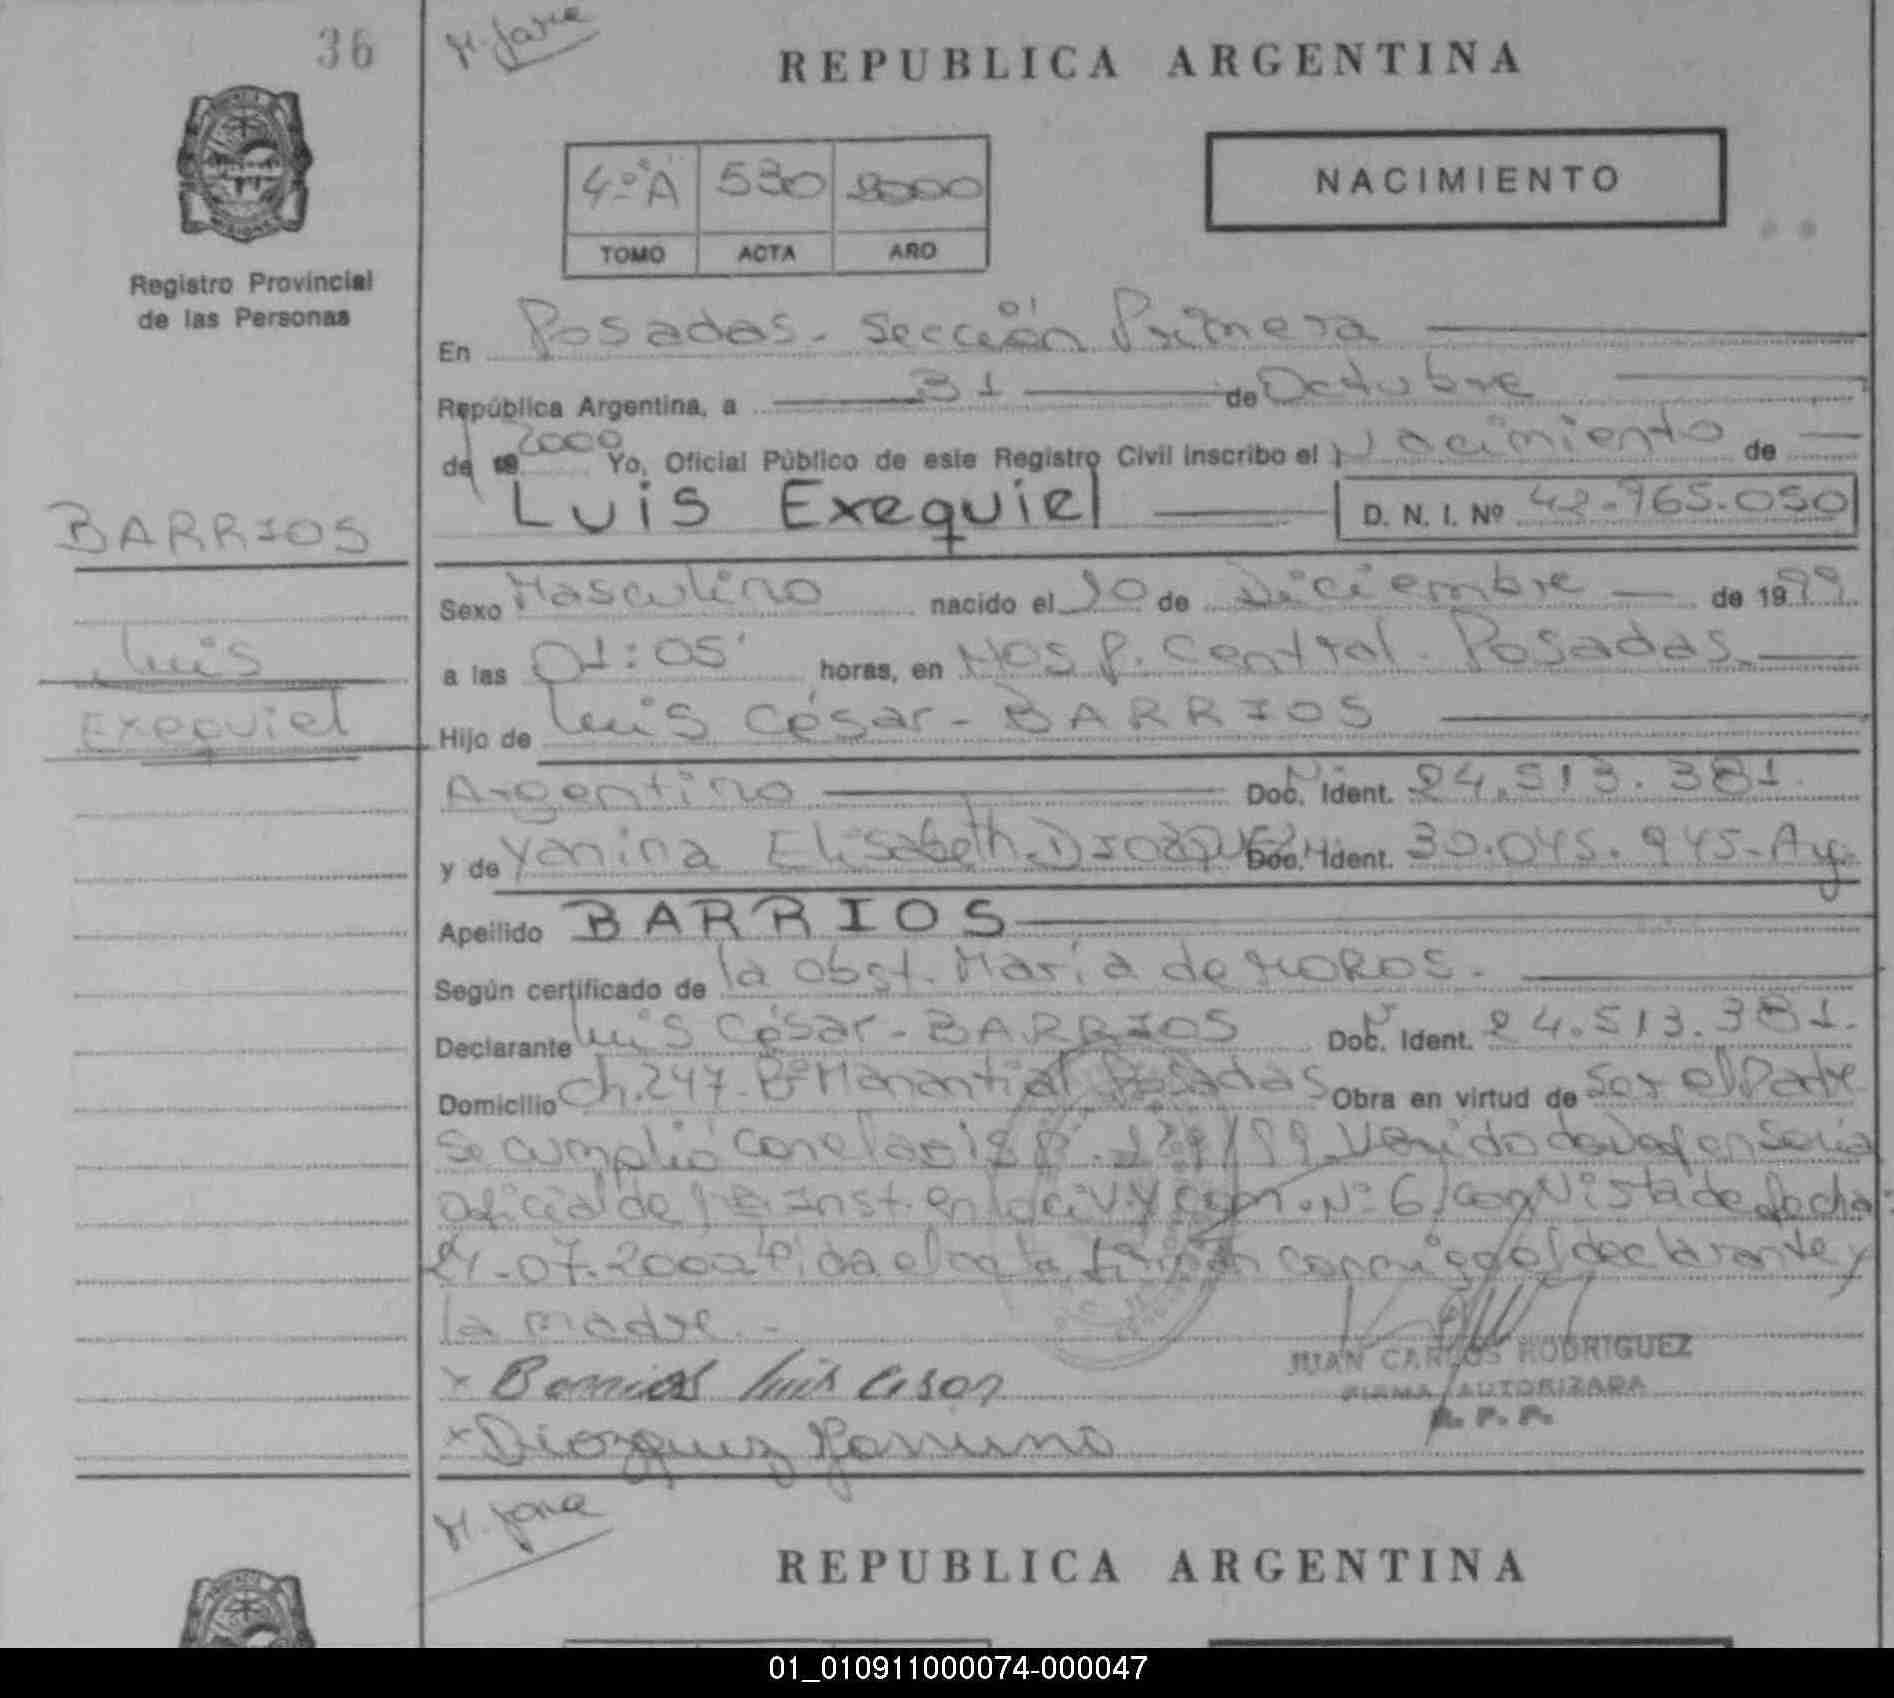 36
M. Jara
REPUBLICA ARGENTINA
4º A 530 2000
NACIMIENTO
TOMO ACTA AÑO
Registro Provincial
de las Personas
En Posadas - Sección Primera
República Argentina, a 31 de Octubre
de 2000 Yo, Oficial Público de este Registro Civil inscribo el Nacimiento de
Luis Exequiel D. N. I. Nº 42.765.050
BARRIOS
Sexo Masculino nacido el 10 de Diciembre de 1999
Luis
a las 01:05' horas, en Hosp. Central - Posadas.
Exequiel
Hijo de Luis César - BARRIOS
Argentino Doc. Ident. 24.513.381.
y de Yanina Elisabeth DIOZQUEZ Doc. Ident. 30.045.945 - Arg.
Apellido BARRIOS
Según certificado de la obst. María de MOROS.
Declarante Luis César - BARRIOS Doc. Ident. 24.513.381.
Domicilio Ch. 247 - Bº Manantial Posadas Obra en virtud de Ser el Padre
Se cumplió con el
oficial de Inst. en lo civ. y com. Nº 6, con vista de fecha
-07-2000 declarante y
la madre. -
x Barrios Luis Cesar
JUAN CARLOS RODRIGUEZ
FIRMA AUTORIZADA
R. P. P.
x Diozquez Yanina
M. Jara
REPUBLICA ARGENTINA
01_010911000074-000047